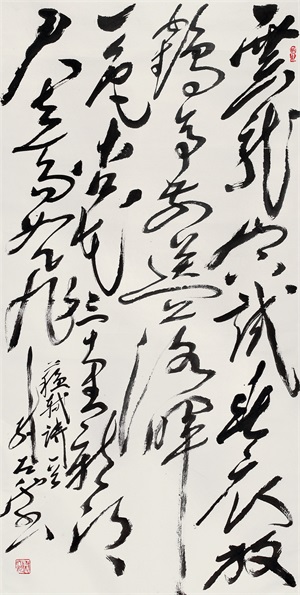 雲龍山下試春衣放
鶴亭前送落暉
一色杏花三十里新郎
君去馬如飛
蘇軾詩一首